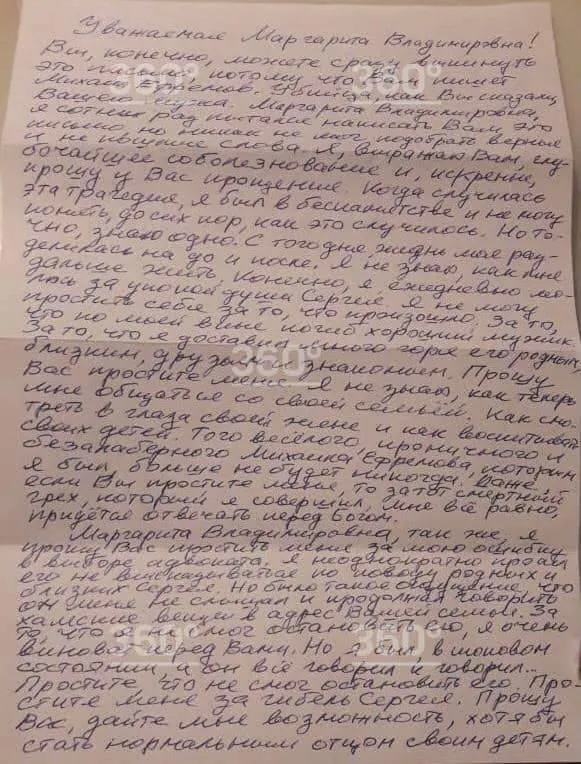 Уважаемая Маргарита Владимировна!
Вы, конечно, можете сразу выкинуть
это письмо, потому что Вам пишет
Михаил Ефремов. Убийца, как Вы сказали,
Вашего мужа. Маргарита Владимировна,
я сотни раз пытался написать Вам это
письмо, но никак не мог подобрать верные
и не пошлые слова. Я, выражаю Вам, глу-
бочайшее соболезнование и, искренне,
прошу у Вас прощения. Когда случилась
эта трагедия, я был в беспамятстве и не могу
понять, до сих пор, как это случилось. Но то-
чно, знаю одно. С того дня жизнь моя раз-
делилась на до и после. Я не знаю, как мне
дальше жить. Конечно, я, ежедневно мо-
люсь за упокой души Сергея. Я не могу
простить себе за то, что произошло. За то,
что по моей вине погиб хороший мужик.
За то, что я доставил много горя его родным,
близким, друзьям и знакомым. Прошу
Вас простите меня. Я не знаю, как теперь
мне общаться со своей семьей. Как смо-
треть в глаза своей жене и как воспитывать
своих детей. Того весёлого, ироничного и
безалаберного Михаила Ефремова, которым
я был, больше не будет никогда. Даже
если Вы простите меня, то за тот смертный
грех, который я совершил, мне всё равно,
придётся отвечать перед Богом.
Маргарита Владимировна, так же, я
прошу Вас простить меня за мою ошибку
в выборе адвоката. Я неоднократно просил
его не высказываться по поводу родных и
близких Сергея. Но было такое ощущение, что
он меня не слышал и продолжал говорить
хамские вещи в адрес Вашей семьи. За
то, что я не смог остановить его, я очень
виноват перед Вами. Но я был, в шоковом
состоянии, и он всё говорил и говорил...
Простите, что не смог остановить его. Про-
стите меня за гибель Сергея. Прошу
Вас, дайте мне возможность, хотя бы
стать нормальным отцом своим детям.
360°
360°
360°
360°
360°
360°